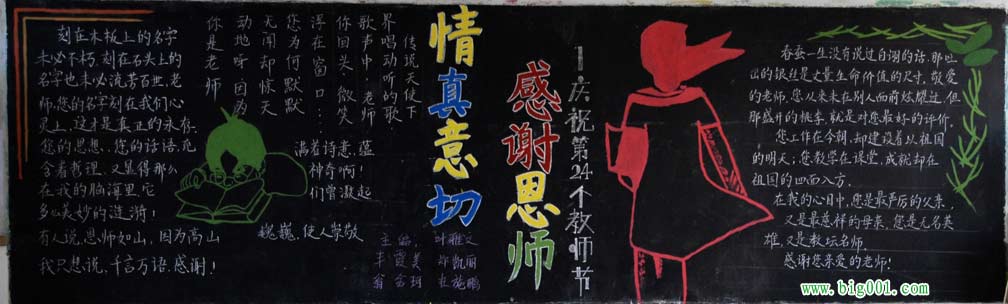 刻在木板上的名字
未必不朽,刻在石头上的
名字也未必流芳百世,老
师,您的名字刻在我们心
灵上,这才是真正的永存.
您的思想、您的话语,充
含着哲理,又显得那么
在我的脑海里,它
多么美妙的涟漪!
满着诗意,蕴
神奇啊!
们曾激起
有人说,恩师如山,因为高山
巍巍,使人崇敬
我只想说,千言万语,感谢!
传说天使下
界唱动听的歌
歌声中,老师
你回头微笑
浮在窗口:
您为何默默
无闻却惊天
动地呼因为
你是老师
情真意切
感谢恩师
庆祝第24个教师节
主编:
春蚕一生没有说过自诩的话,那些
出的银丝是丈量生命价值的尺寸.敬爱
的老师,您从来未在别人面前炫耀过,但
那盛开的桃李,就是对您最好的评价.
您工作在今朝,却建设着从祖国
的明天;您教学在课堂,成就却在
祖国的四面八方.
在我的心目中,您是最严厉的父亲,
又是最慈祥的母亲,您是无名英
雄,又是教坛名师.
感谢您亲爱的老师!
www.big001.com